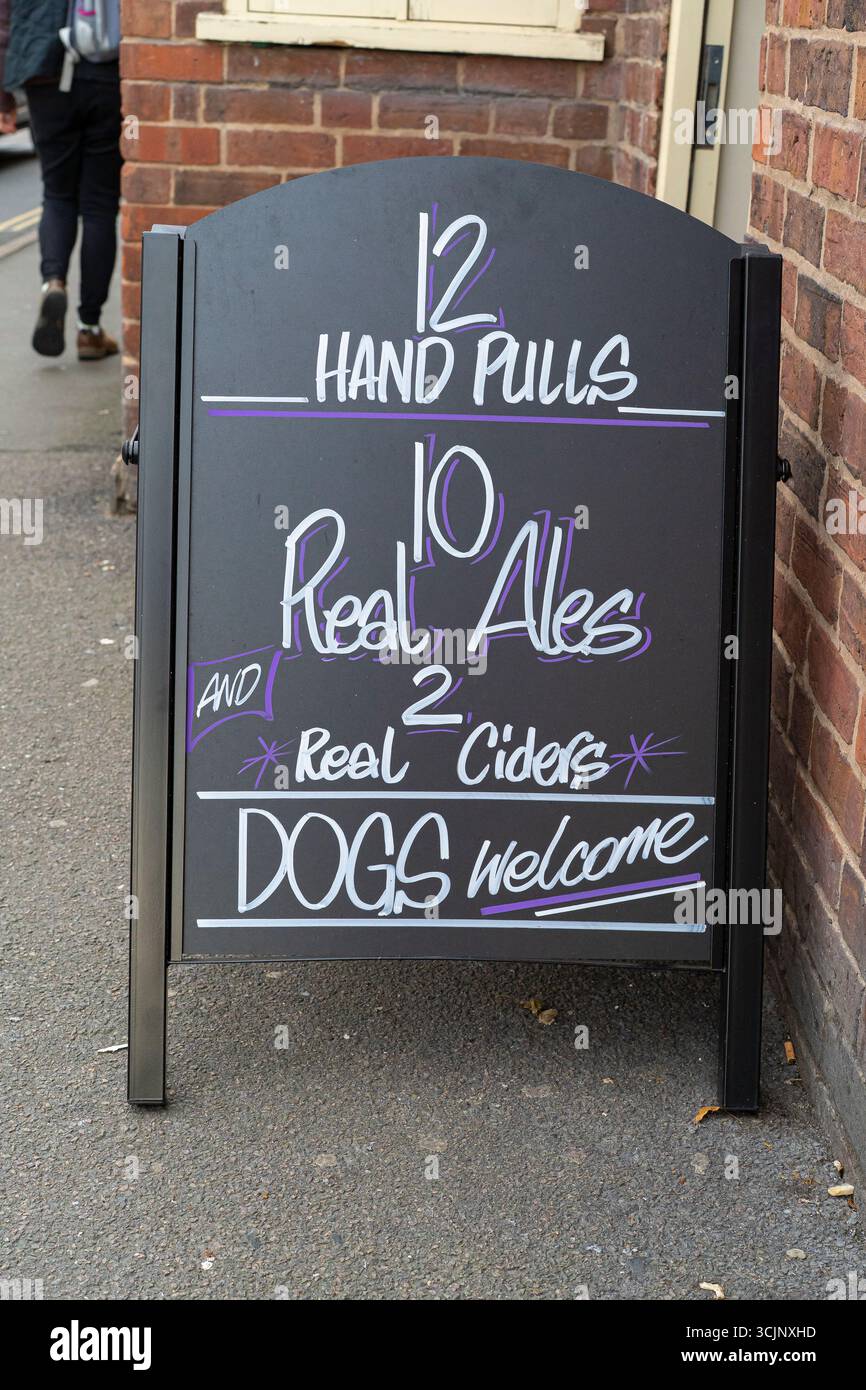 12
HAND PULLS
10
Real Ales
AND
2
Real Ciders
DOGS welcome
alamy
Image ID: 3CJNXHD
www.alamy.com